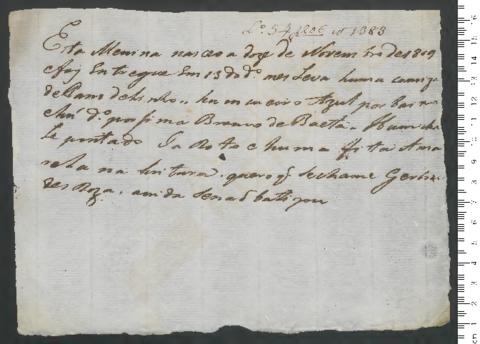 Lº 54 1806 nº 1388
Esta Menina nasceo a doze de Novembro de 1819
e foj Entregue Em 13 do dº. nes Leva huma camiza
de Pano de Linho, hum cueiro Azul por baixo
e hum dº. por sima Branco de Baeta, Hum chale
pintado Sapato e huma fita Ama
rela na sintura, quero q se chame Gertru
des Roza, ainda se não batizou